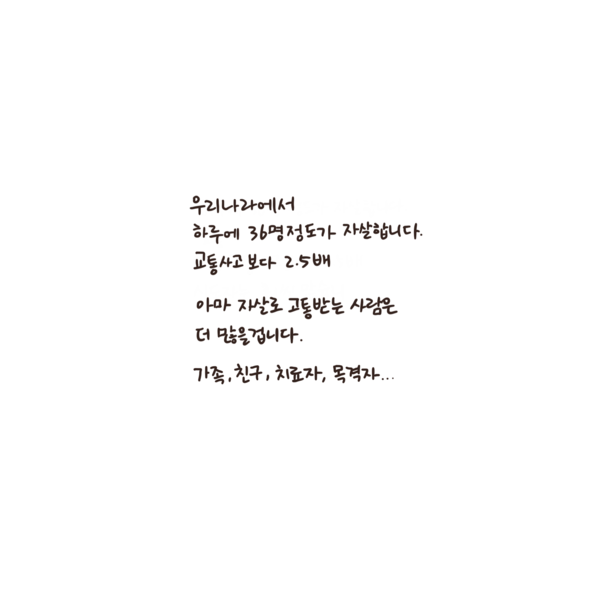 우리나라에서
하루에 36명정도가 자살합니다.
교통사고보다 2.5배
아마 자살로 고통받는 사람은
더 많을겁니다.
가족, 친구, 치료자, 목격자...